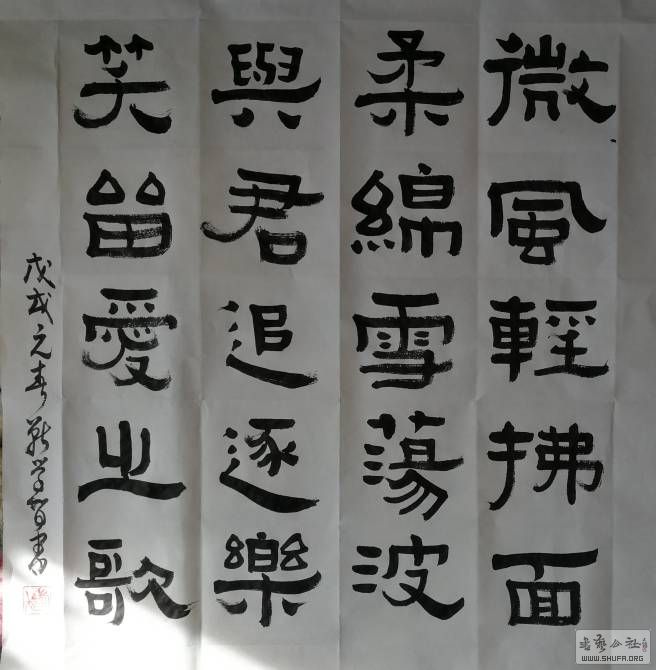 微風輕拂面
柔綿雪蕩波
與君追逐樂
笑留愛之歌
戊戌元春 学書
书艺公社
WWW.SHUFA.ORG